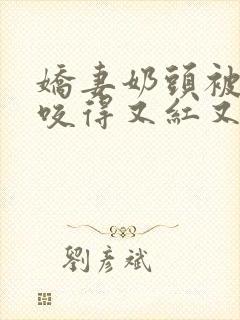 嬌妻奶頭被
咬得又紅又
劉彥斌